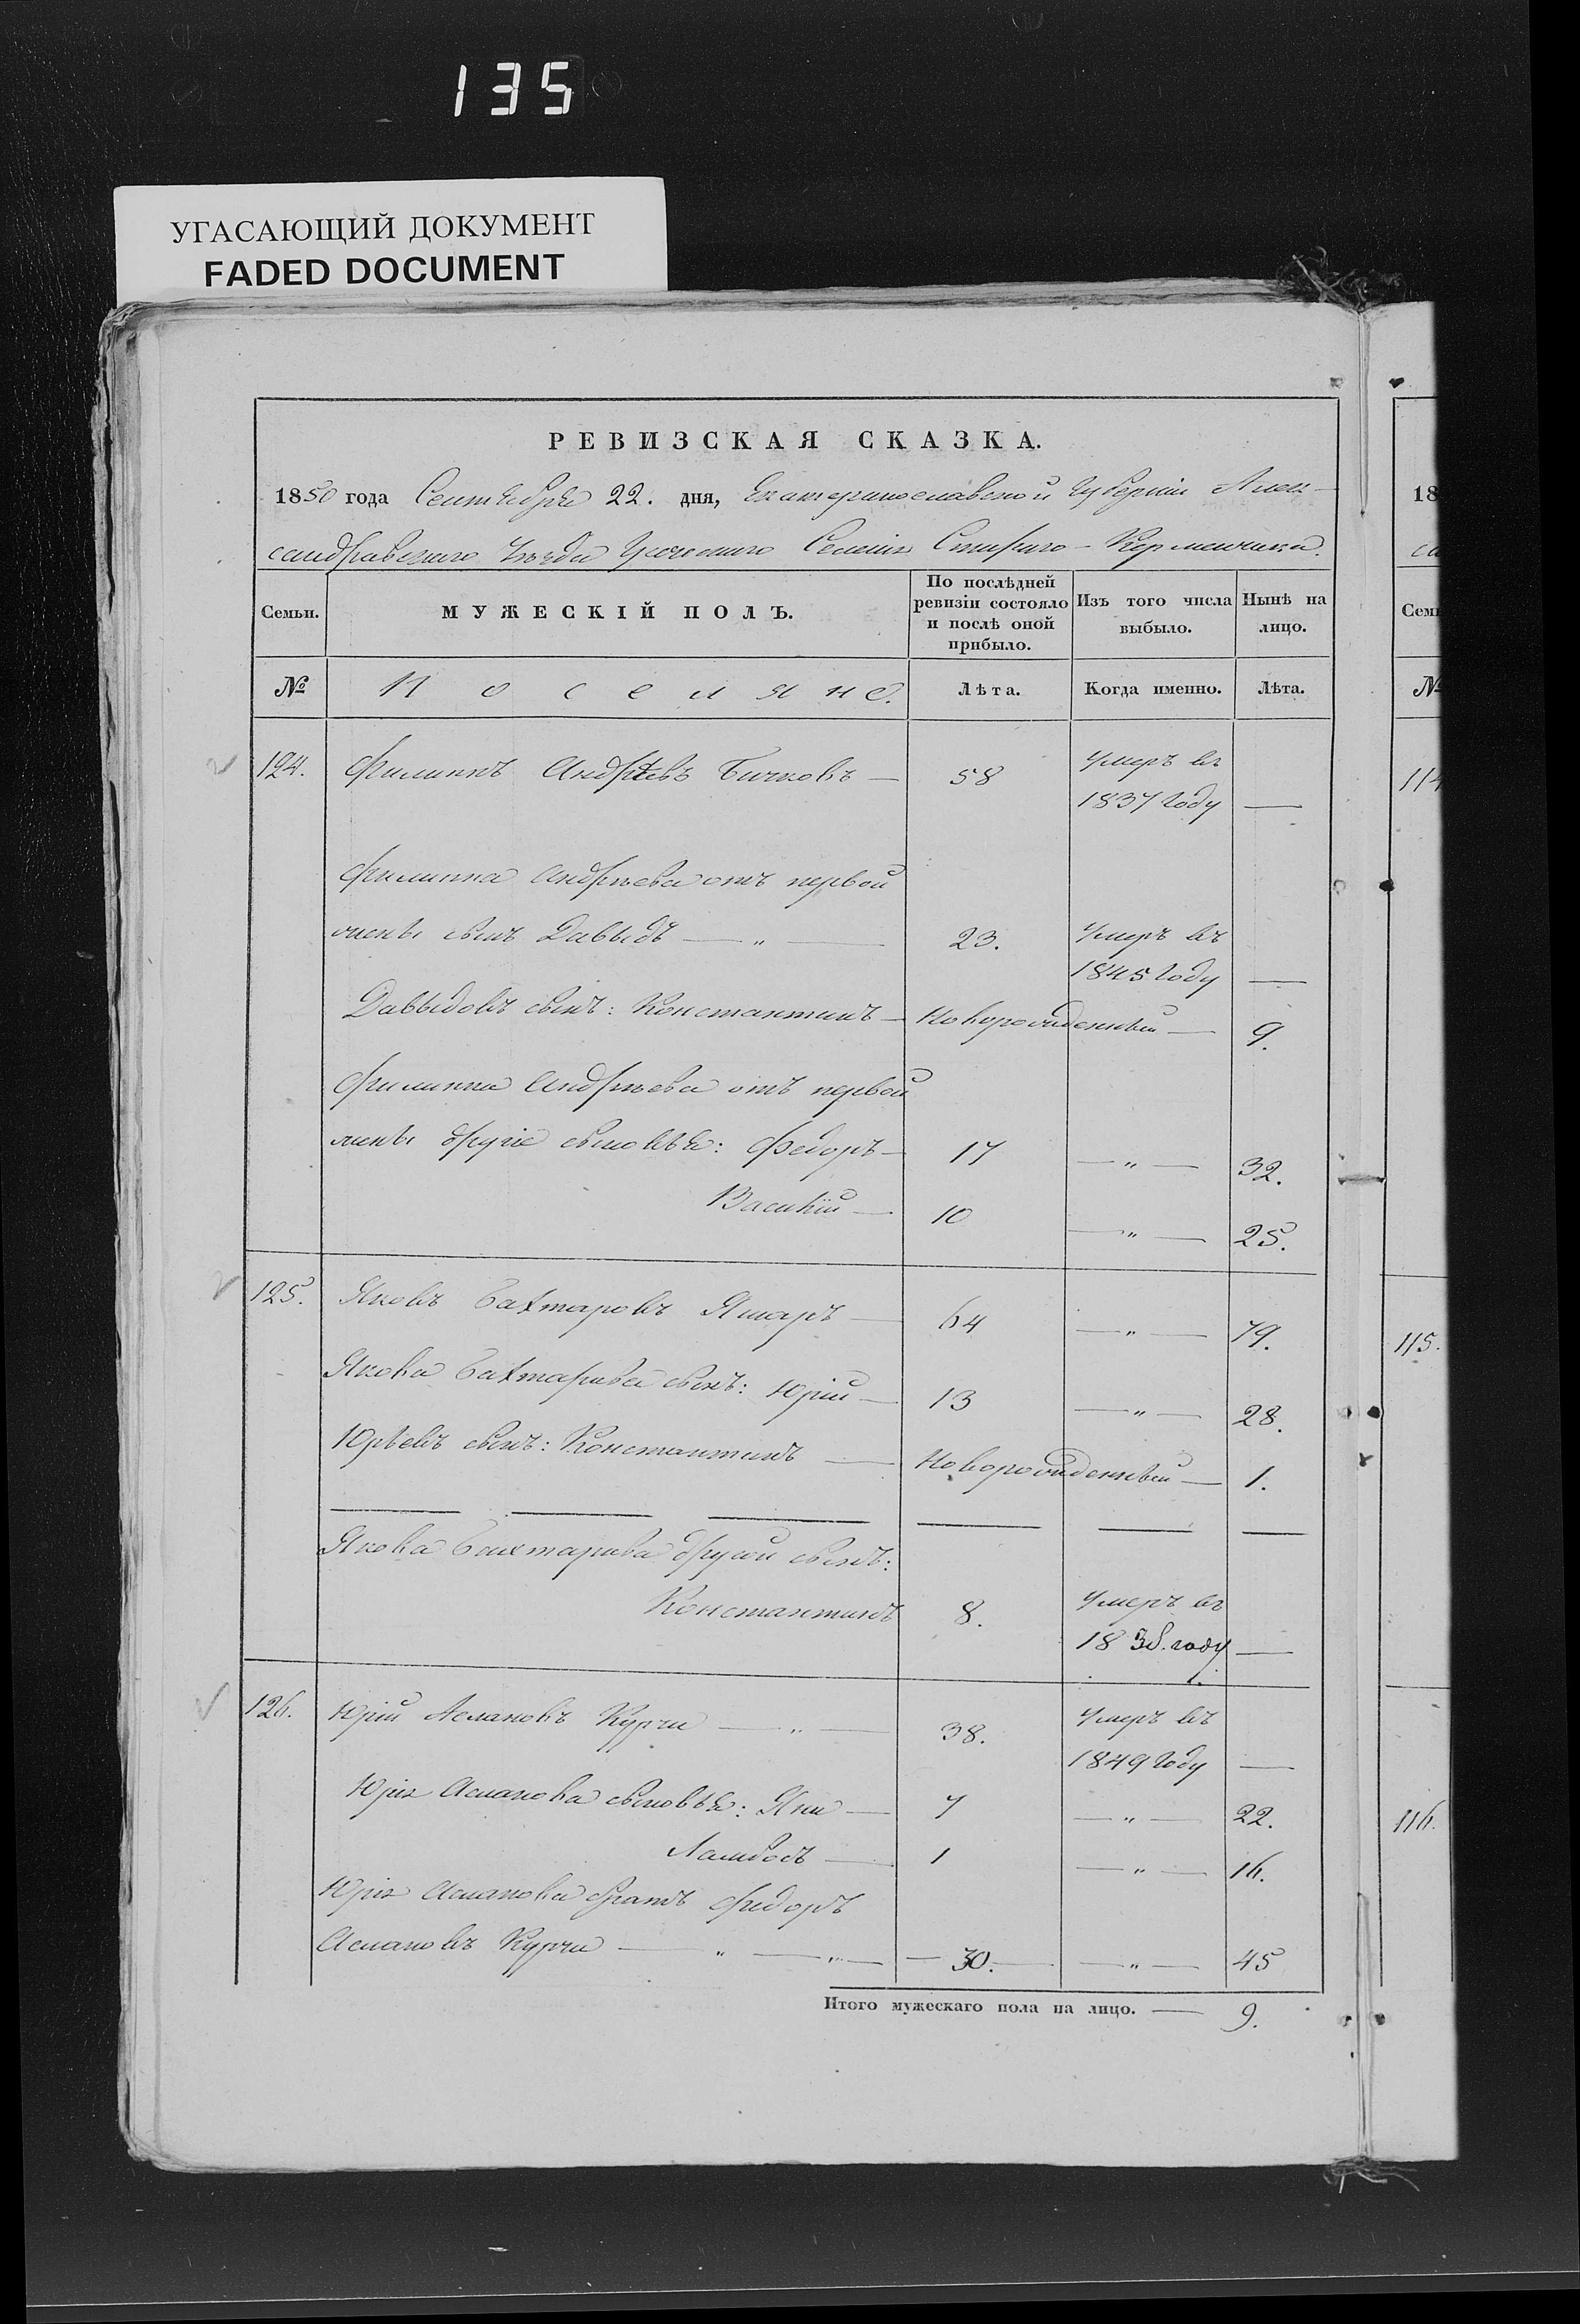 135
УГАСАЮЩИЙ ДОКУМЕНТ
FADED DOCUMENT
РЕВИЗСКАЯ СКАЗКА.
1850 года Сентября 22. дня, Екатеринославской Губерніи Алек-
сандровскаго Уѣзда Селенія Стараго-Керменчика.
Семьи.
МУЖЕСКІЙ ПОЛЪ.
По послѣдней ревизіи состояло и послѣ оной прибыло.
Изъ того числа выбыло.
Нынѣ на лицо.
№
Поселяне.
Лѣта.
Когда именно.
Лѣта.
124. Филиппъ Андреевъ Бичковъ — 58 Умеръ въ
1837 году —
Филиппа Андреева отъ первой
жены сынъ Давыдъ — „ — 23. Умеръ въ
1845 году —
Давыдовъ сынъ: Константинъ — Новорожденный — 9.
Филиппа Андреева отъ первой
жены другіе сыновья: Федоръ — 17 — „ — 32.
Василій — 10 — „ — 25.
125. Яковъ Бахтаровъ Яшаръ — 64 — „ — 79.
Якова Бахтарова сынъ: Юрій — 13 — „ — 28.
Юрьевъ сынъ: Константинъ — Новорожденный — 1.
Якова Бахтарова другой сынъ:
Константинъ 8. Умеръ въ
1838. году —
126. Юрій Аслановъ Курчи — „ — 38. Умеръ въ
1849 году —
Юрія Асланова сыновья: Яни — 7 — „ — 22.
Ламбосъ — 1 — „ — 16.
Юрія Асланова братъ Федоръ
Аслановъ Курчи — „ — „ — 30. — „ — 45
Итого мужескаго пола на лицо. — 9.
18
са
Семь
№
114
115.
116.